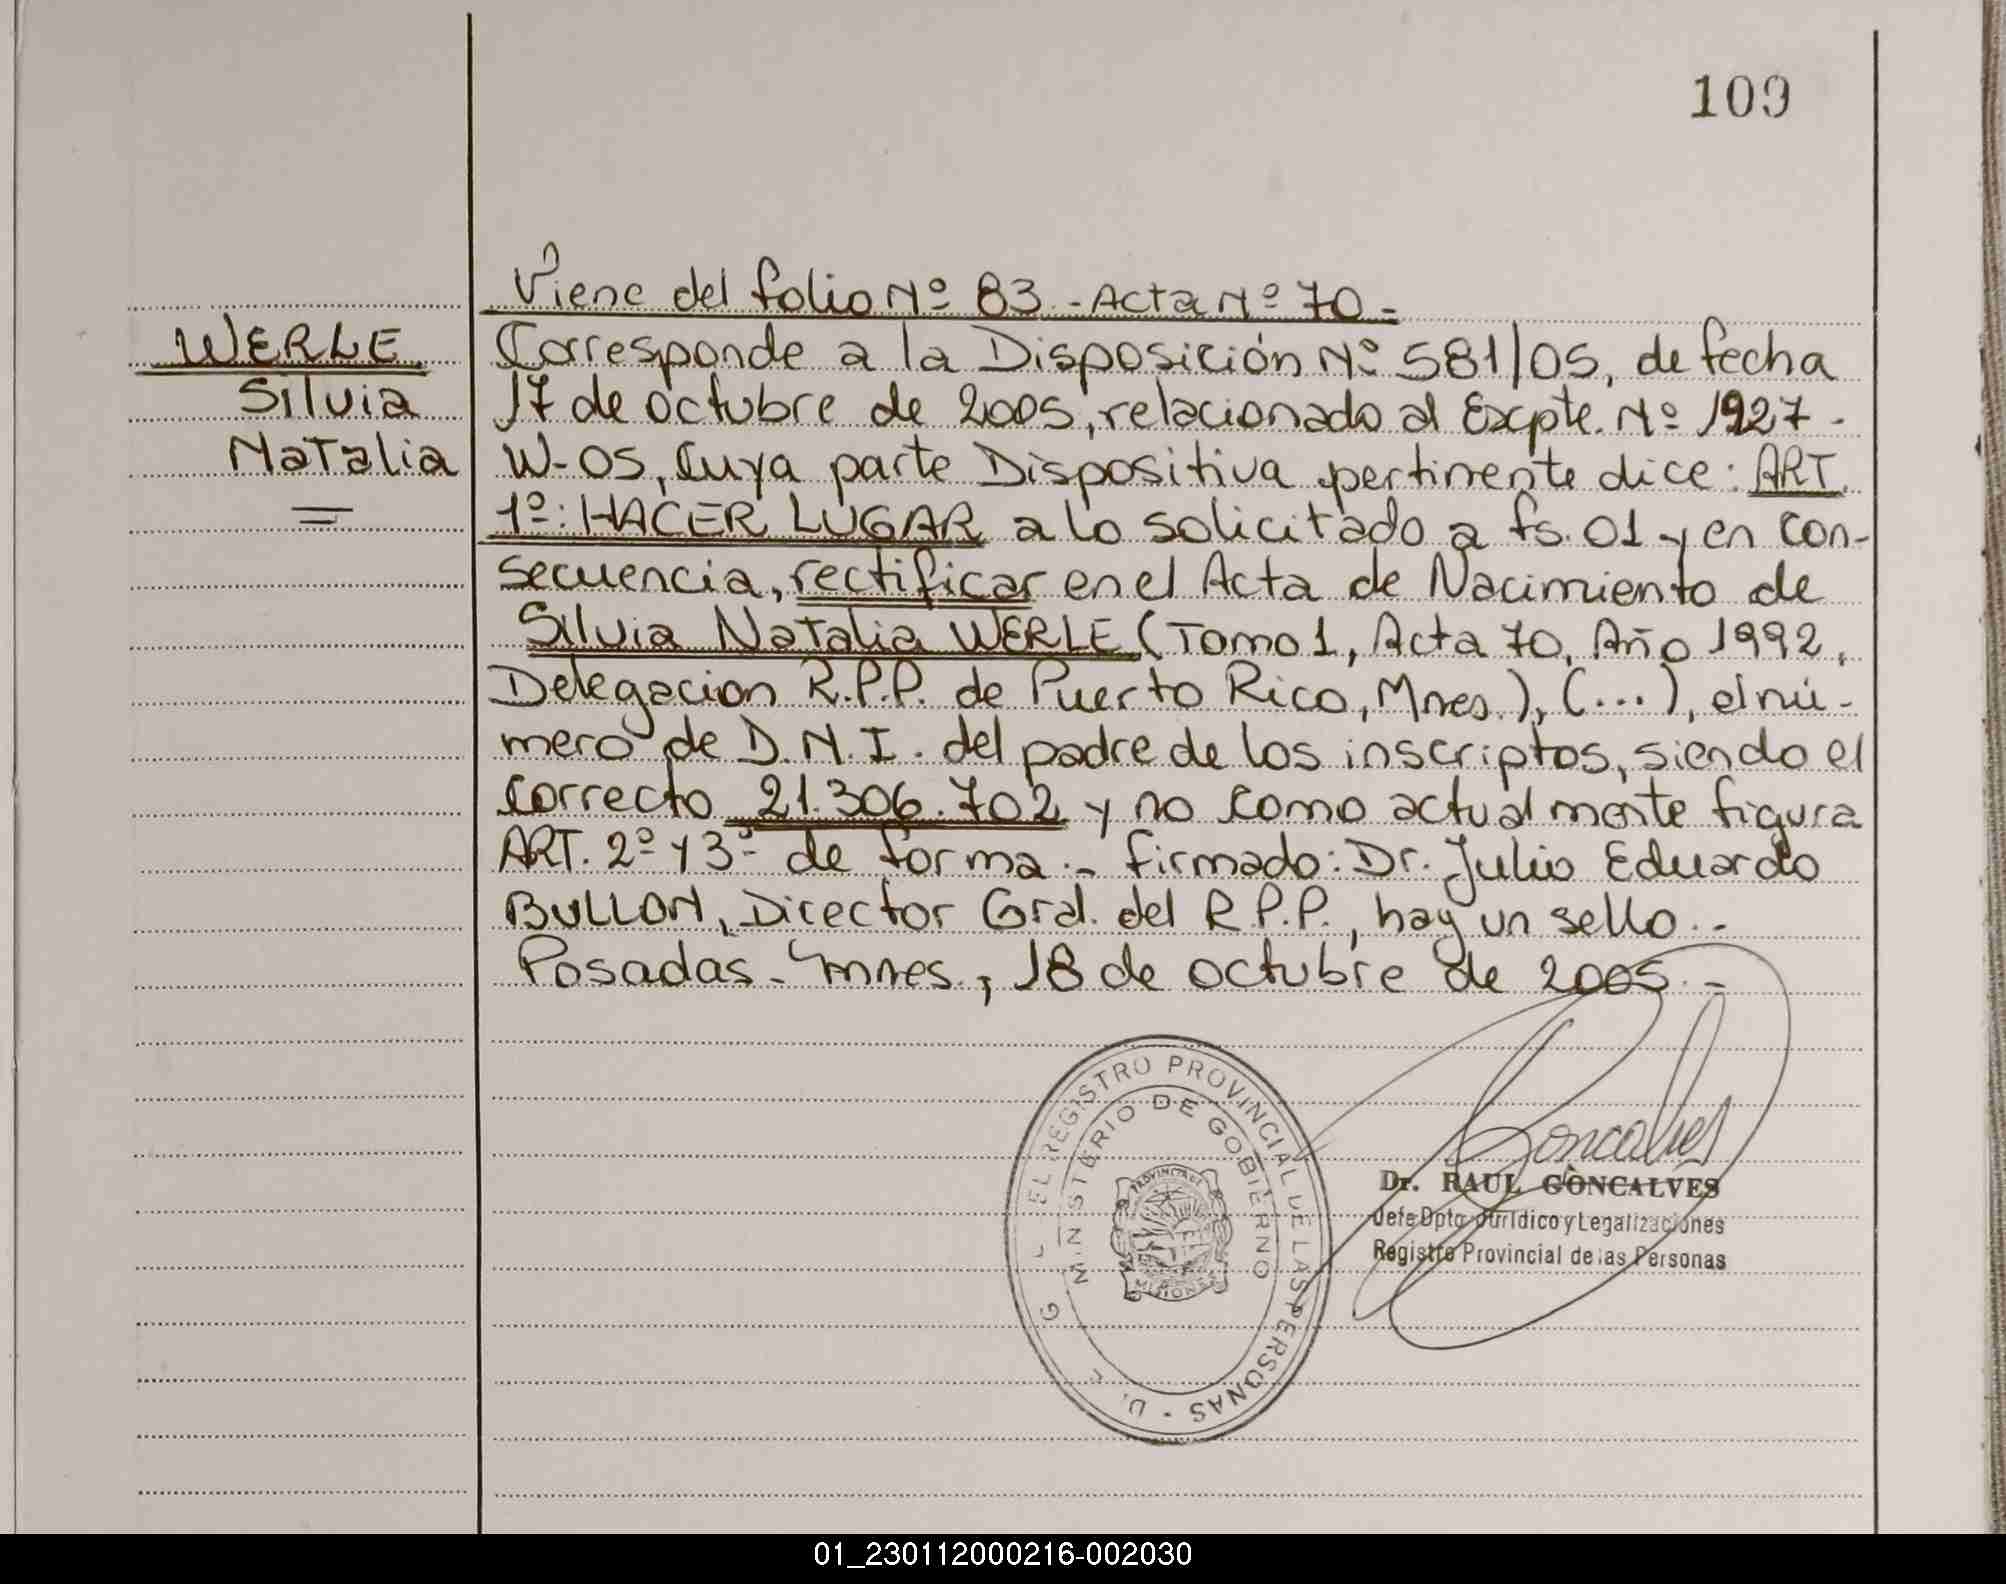 109
Viene del folio Nº 83 - Acta Nº 70 -
WERLE
Silvia
Natalia
Corresponde a la Disposición Nº 581/05, de fecha
17 de octubre de 2005, relacionado al Excpte. Nº 1927-
W-05, Cuya parte Dispositiva pertinente dice: ART.
1º: HACER LUGAR a lo solicitado a fs. 01 y en con-
secuencia, rectificar en el Acta de Nacimiento de
Silvia Natalia WERLE (Tomo 1, Acta 70, Año 1992,
Delegacion R.P.P. de Puerto Rico, Mnes.), (...), el nú-
mero de D.N.I. del padre de los inscriptos, siendo el
correcto 21.306.702 y no como actualmente figura
ART. 2º y 3º de forma.- firmado: Dr. Julio Eduardo
BULLON, Director Gral. del R.P.P., hay un sello.-
Posadas - Mnes., 18 de octubre de 2005.-
REGISTRO PROVINCIAL DE LAS PERSONAS
MINISTERIO DE GOBIERNO
PROVINCIA DE
MISIONES
Goncalves
Dr. RAUL GONCALVES
Jefe Dpto Jurídico y Legalizaciones
Registro Provincial de las Personas
01_230112000216-002030